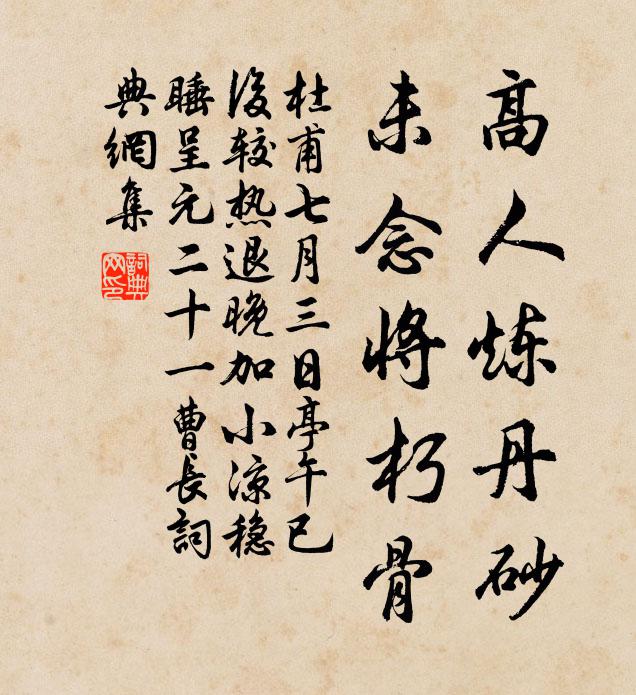 高人炼丹砂
未念将朽骨
杜甫七月三日亭午已
後较热退晚加小凉稳
睡呈元二十一曹长詞
典網集
詞典网印